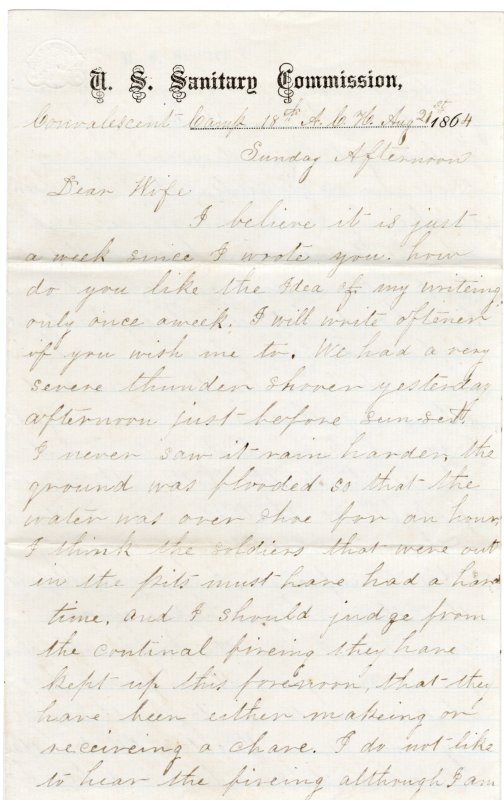 U. S. Sanitary Commission,
Convalescent Camp 18th A. C. H. Aug 21st 1864
Sunday Afternoon
Dear Wife
I believe it is just
a week since I wrote you. how
do you like the Idea of my writeing
only once aweek. I will write oftener
if you wish me to. We had a very
severe thunder shower yesterday
afternoon just before sun-sett.
I never saw it rain harder, the
ground was flooded so that the
water was over shoe for an hour
I think the soldiers that were out
in the pits must have had a hard
time. and I should judge from
the continal fireing they have
kept up this forenoon, that they
have been either makeing or
receiveing a chare. I do not like
to hear the fireing although I am